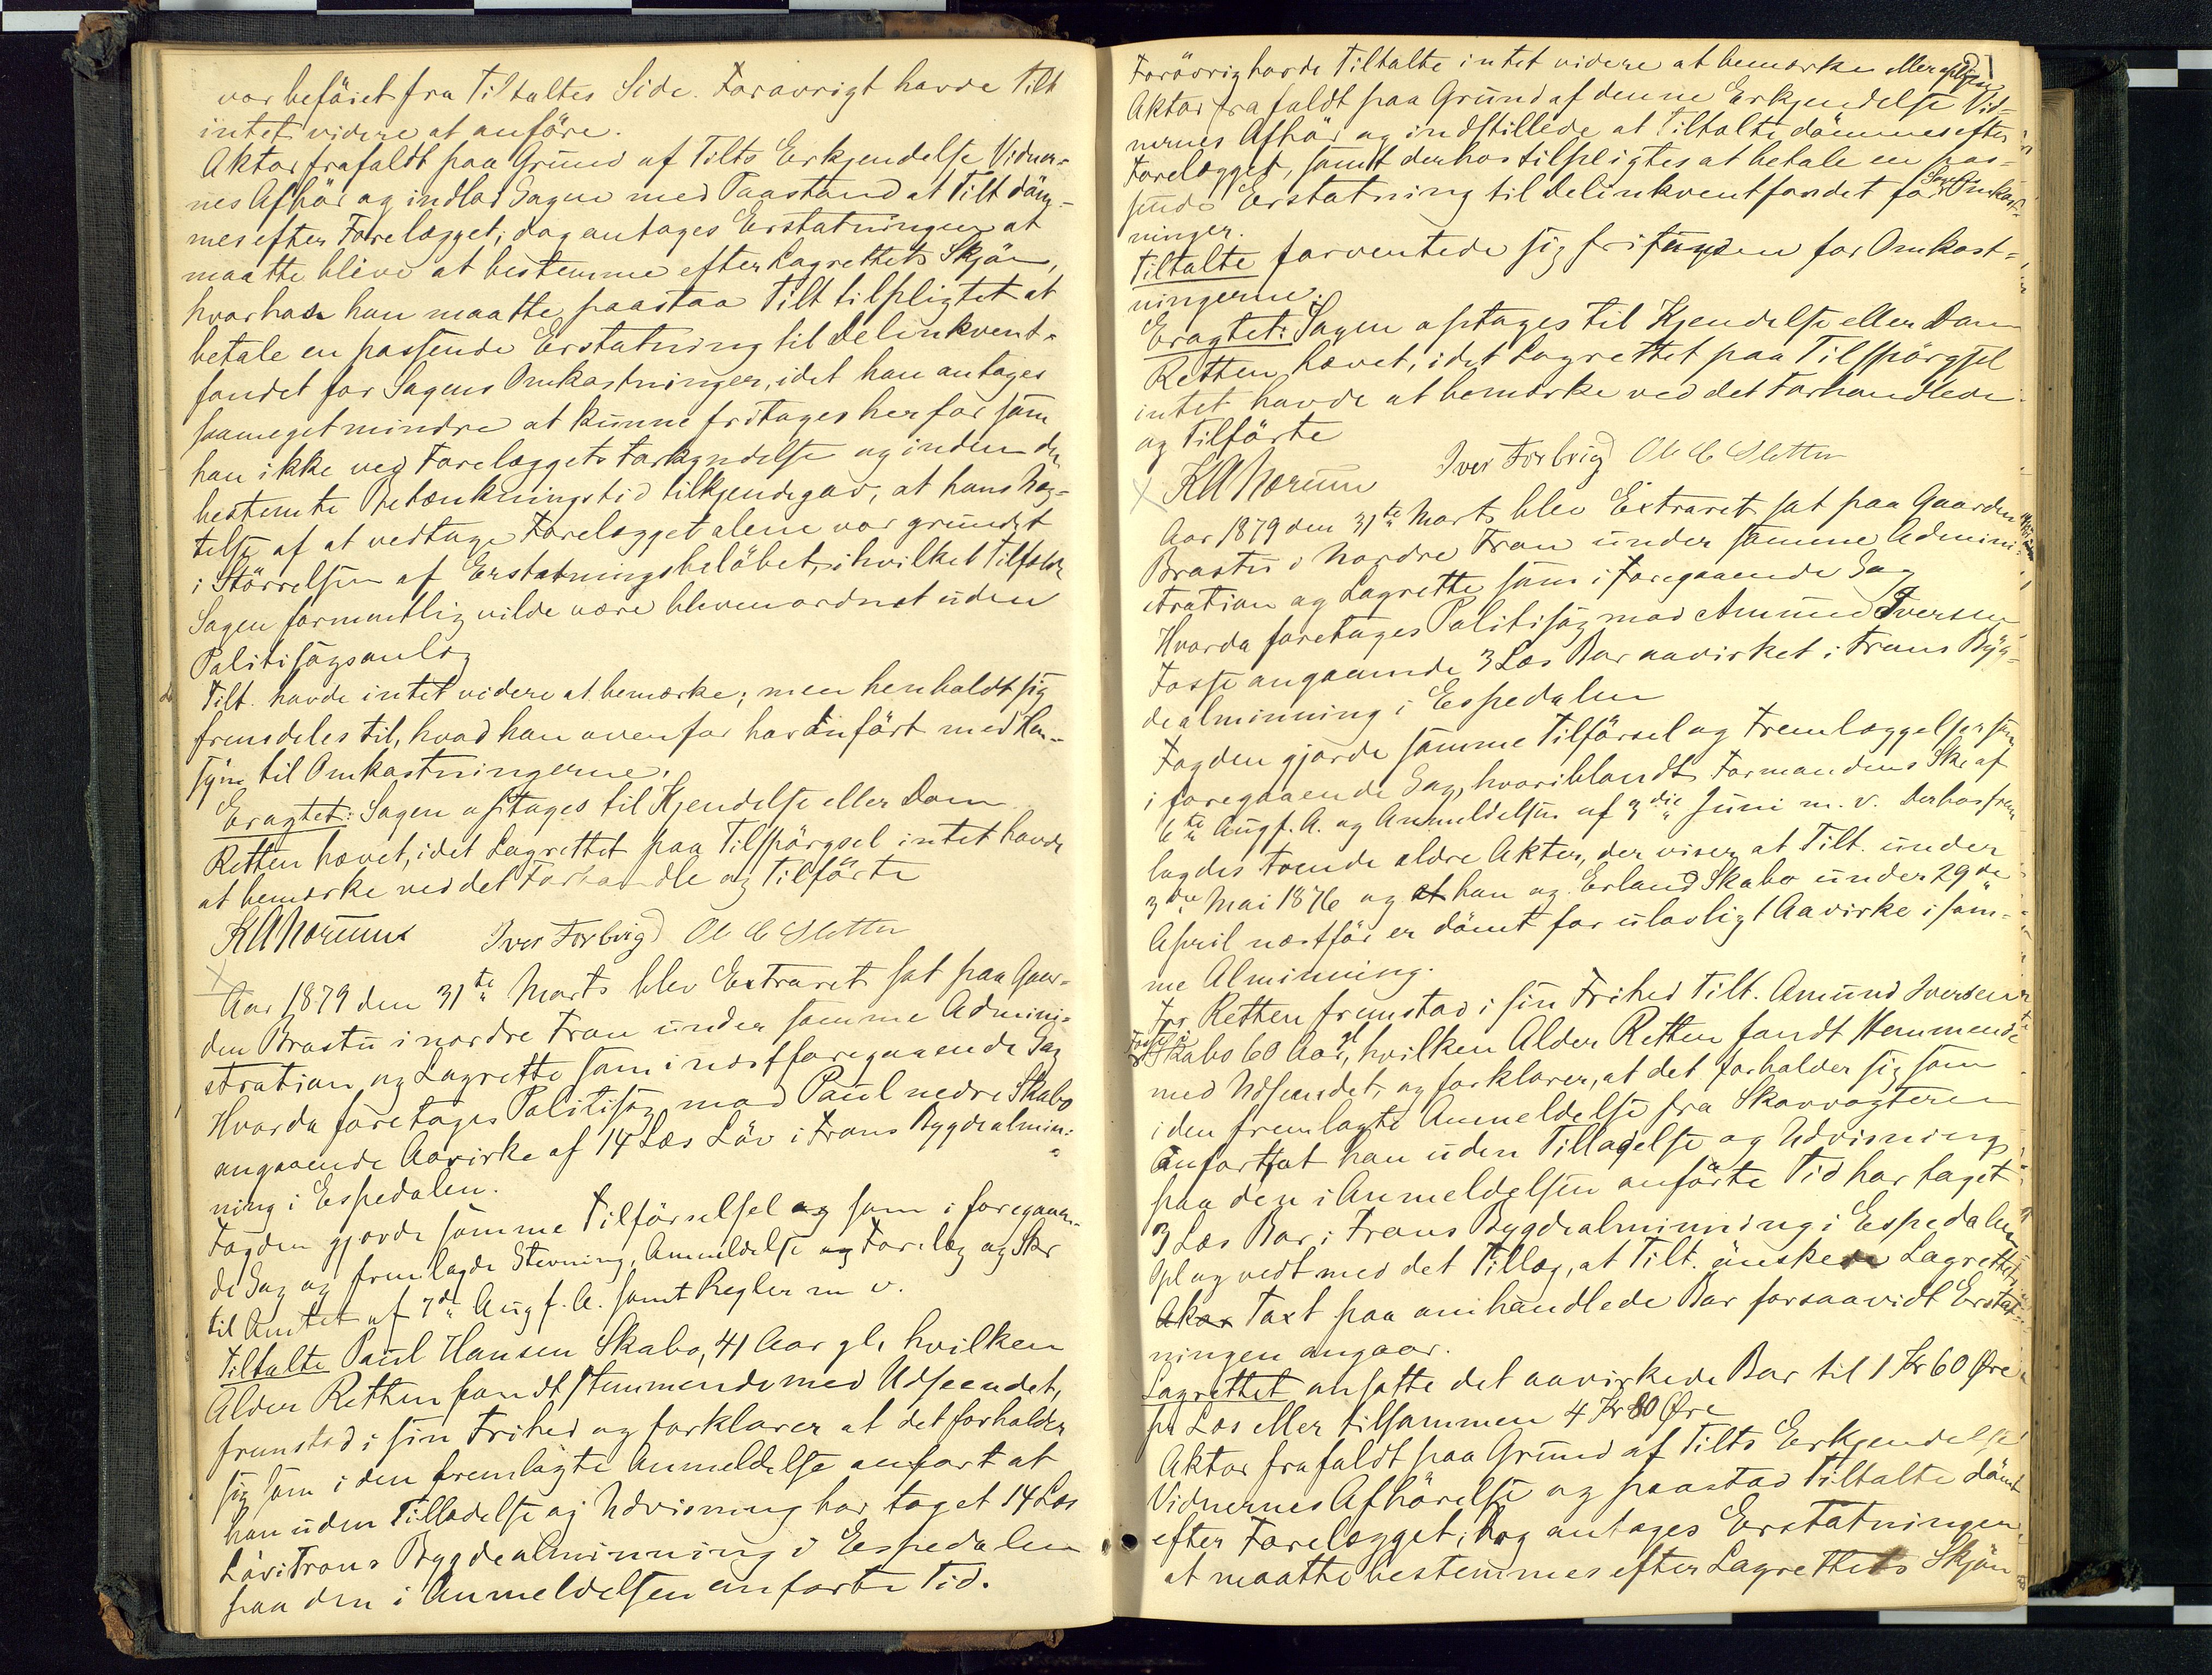 var beföiet fra Tiltaltes Side. Foravrigt havde Tilt
intet videre at anföre.
Aktor frafaldt paa Grund af Tilts Erkjendelse Vidner-
nes Afhör og indlod Sagen med Paastand at Tilt döm-
mes efter Forelægget; dog antages Erstatningen at
maatte blive at bestemme efter Lagrettets Skjön,
hvorhos han maatte paastaa Tilt tilpligtet at
betale en passende Erstatning til Delinkvent-
fondet for Sagens Omkostninger, idet han antages
saameget mindre at kunne fritages herfor som
han ikke ved Forelæggets Forkyndelse og inden den
bestemte Betænkningstid tilkjendegav, at hans Næg-
telse af at vedtage Forelægget alene var grundet
i Störrelsen af Erstatningsbelöbet, i hvilket Tilfælde
Sagen formentlig vilde være bleven ordnet uden
Politisagsanlæg
Tilt. havde intet videre at bemærke; men henholdt sig
fremdeles til, hvad han ovenfor har anfört med Hen-
syn til Omkostningerne.
Eragtet: Sagen optages til Kjendelse eller Dom
Retten hævet, idet Lagrettet paa Tilspörgsel intet havde
at bemærke ved det Forhandle og Tilförte
KANorum Iver Forbrig Ol C Sletten
Aar 1879 den 31te Marts blev Extraret sat paa Gaar-
den Brastu i nordre Fron under samme Admini-
stration og Lagrette som i næstforegaaende Sag
Hvorda foretages Politisag mod Paul nedre Skabo
angaaende Aavirke af 14 Læs Löv i Frons Bygdealmin-
ning i Espedalen.
Fogden gjorde samme Tilförselsel og som i foregaaen-
de Sag og fremlagde Stevning, Anmeldelse og Forelæg og Skr
til Amtet af 7de Aug f. A. samt Regler m v.
Tiltalte Paul Hansen Skabo, 41 Aar gl, hvilken
Alder Retten fandt stemmende med Udseendet,
fremstod i sin Frihed og forklarer at det forholder
sig som i den fremlagte Anmeldelse anfort at
han uden Tilladelse og Udvisning har taget 14 Læs
Löv i Frons Bygdealminning i Espedalen
paa den i Anmeldelsen anforte Tid.
Forövrig havde Tiltalte intet videre at bemærke eller oplyse
Aktor frafaldt paa Grund af denne Erkjendelse Vid-
nernes Afhör og indstillede at Tiltalte dömmes efter
Forelægget, samt derhos tilpligtes at betale en pas-
sende Erstatning til Delinkventfondet for Sagens Omkost-
ninger.
Tiltalte forventede sig fritagen for Omkost-
ningerne.
Eragtet: Sagen optages til Kjendelse eller Dom
Retten hævet, idet Lagrettet paa Tilspörgsel
intet havde at bemærke ved det Forhandlede
og Tilförte
KANorum Iver Forbrig Ol C Sletten
Aar 1879 den 31te Marts blev Extraret sat paa Gaarden
Brastu i Nordre Fron under samme Admini-
stration og Lagrette som i foregaaende Sag
Hvorda foretages Politisag mod Amund Iversen
Fosse angaaende 3 Læs Bar aavirket i Frons Byg-
dealminning i Espedalen
Fogden gjorde samme Tilförsel og Fremlæggelser som
i foregaaende Sag, hvoriblandt Formandens Skr af
6te Aug f. A. og Anmeldelsen af 3die Juni m. v. Derhos frem
lagdes tvende ældre Akter, der viser at Tilt. under
3die Mai 1876 og at han og Erland Skabo under 29de
April næstför er dömt for ulovligt Aavirke i sam-
me Alminning.
For Retten fremstod i sin Frihed Tilt. Amund Iversen
Fosse i Skabo 60 Aar gl, hvilken Alder Retten fandt stemmende
med Udseendet, og forklarer, at det forholder sig som
i den fremlagte Anmeldelse fra Skovvogteren
anfort at han uden Tilladelse og Udvisning
paa den i Anmeldelsen anförte Tid har taget
3 Læs Bar i Frons Bygdealminning i Espedalen
Opl og vedt med det Tillæg, at Tilt. önskede Lagrettets
Akor Taxt paa omhandlede Bar forsaavidt Erstat-
ningen angaar.
Lagrettet ansatte det aavirkede Bar til 1 Kr 60 Øre
pr Læs eller tilsammen 4 Kr 80 Øre
Aktor frafaldt paa Grund af Tilts Erkjendelse
Vidnernes Afhörelse og paastod Tiltalte dömt
efter Forelægget; dog antages Erstatningen
at maatte bestemmes efter Lagrettets Skjön